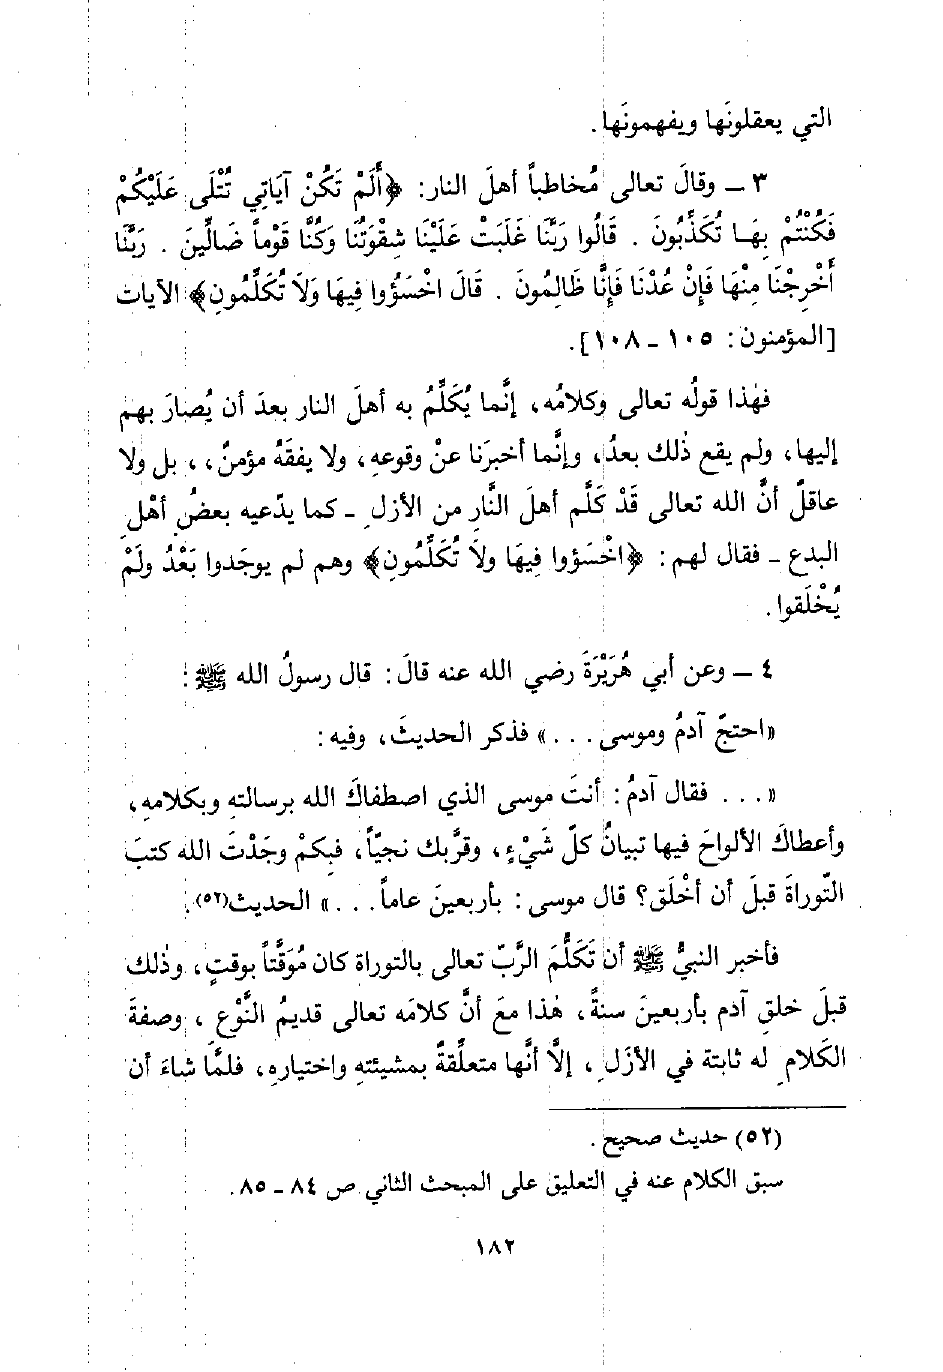 التي يعقلونَها ويفهمونَها.
٣ ـ وقالَ تعالى مُخاطباً أهلَ النار: ﴿أَلَمْ تَكُنْ آيَاتِي تُتْلَى عَلَيْكُمْ
فَكُنْتُمْ بِهَا تُكَذِّبُونَ . قَالُوا رَبَّنَا غَلَبَتْ عَلَيْنَا شِقوَتُنَا وَكُنَّا قَوْماً ضَالِّينَ . رَبَّنَا
أَخْرِجْنَا مِنْهَا فَإِنْ عُدْنَا فَإِنَّا ظَالِمُونَ . قَالَ اخْسَؤُوا فِيهَا وَلاَ تُكَلِّمُونِ﴾ الآيات
[المؤمنون: ١٠٥ ـ ١٠٨].
فهٰذا قولُه تعالى وكلامُه، إنَّما يُكَلِّمُ به أهلَ النار بعدَ أن يُصارَ بهم
إليها، ولم يقع ذٰلك بعدُ، وإنَّما أخبرَنا عنْ وقوعهِ، ولا يفقَهُ مؤمنٌ، ، بل ولا
عاقلٌ أنَّ الله تعالى قَدْ كَلَّم أهلَ النَّارِ من الأزلِ ـ كما يدّعيه بعضُ أهْلِ
البدع ـ فقال لهم: ﴿اخْسَؤُوا فِيهَا ولاَ تُكَلِّمُونِ﴾ وهم لم يوجَدوا بَعْدُ ولَمْ
يُخْلَقوا.
٤ ـ وعن أبي هُرَيْرَةَ رضي الله عنه قالَ: قال رسولُ الله ﷺ:
«احتجّ آدمُ وموسى. . .» فذكر الحديثَ، وفيه:
«. . . فقال آدمُ: أنتَ موسى الذي اصطفاكَ الله برسالتهِ وبكلامهِ،
وأعطاكَ الألواحَ فيها تبيانُ كلّ شَيْءٍ، وقرَّبك نجيّاً، فبِكمْ وجَدْتَ الله كتبَ
التّوراةَ قبلَ أن أخْلَق؟ قال موسى: بأربعينَ عاماً. . .» الحديث(٥٢).
فأخبر النبيُّ ﷺ أن تَكَلُّمَ الرَّبّ تعالى بالتوراة كان مُوَقَّتاً بوقتٍ، وذٰلك
قبلَ خلقِ آدم بأربعينَ سنةً، هٰذا معَ أنَّ كلامَه تعالى قديمُ النَّوْعِ ، وصفةَ
الكَلامِ له ثابتة في الأزَلِ ، إلاَّ أنَّها متعلِّقةٌ بمشيئتهِ واختيارهِ، فلمَّا شاءَ أن
(٥٢) حديث صحيح.
سبق الكلام عنه في التعليق على المبحث الثاني ص ٨٤ ـ ٨٥.
١٨٢